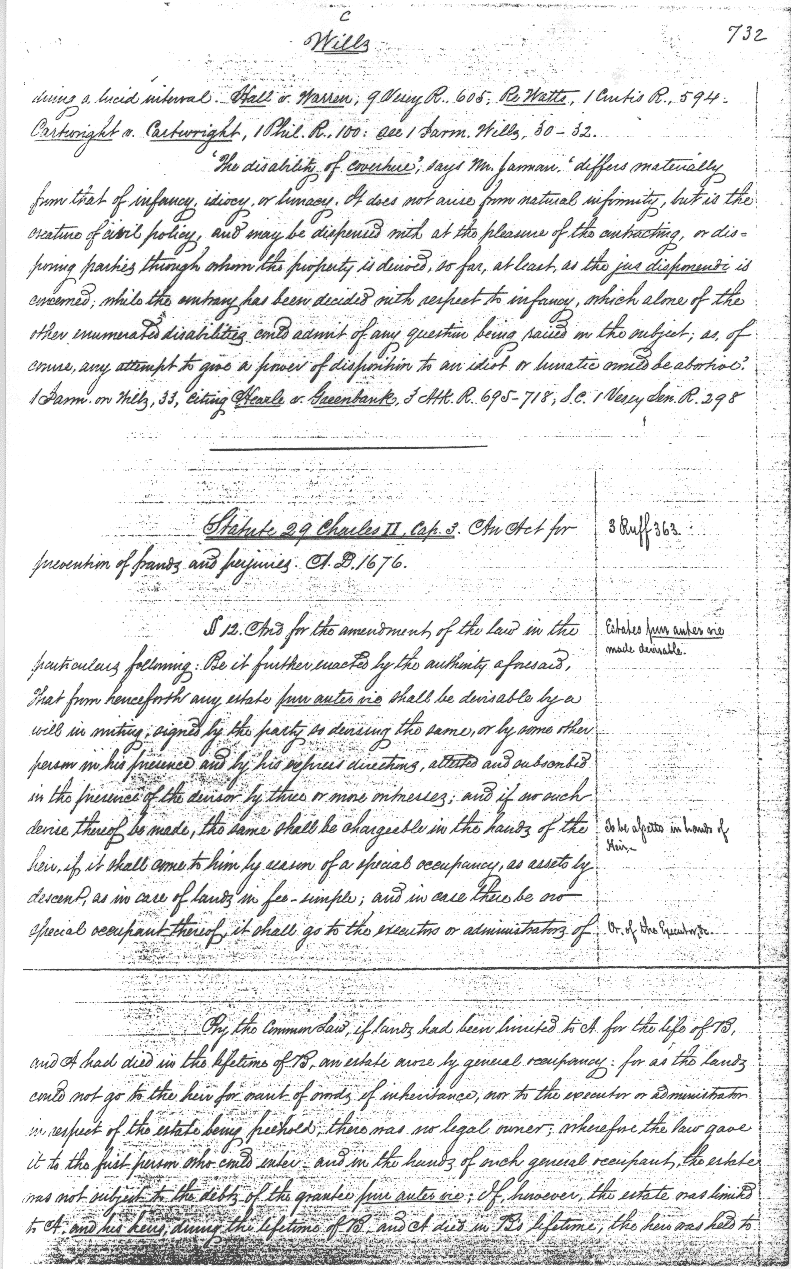 C
Wills
732
during a lucid interval. Hall v. Warren, 9 Vesey R., 605; Re Watts, 1 Curtis R., 594.
Cartwright v. Cartwright, 1 Phil. R., 100: see 1 Jarm. Wills, 30-32.
"The disability of coverture", says Mr. Jarman, "differs materially
from that of infancy, idiocy, or lunacy. It does not arise from natural infirmity, but is the
creature of civil policy, and may be dispensed with at the pleasure of the contracting, or dis=
posing parties through whom the property is derived, so far, at least, as the jus disponendi is
concerned; while the contrary has been decided with respect to infancy, which alone of the
other enumerated disabilities could admit of any question being raised on the subject; as, of
course, any attempt to give a power of disposition to an idiot or lunatic would be abortive."
1 Jarm. on Wills, 33, citing Hearle v. Greenbank, 3 Atk. R. 695-718; S.C. 1 Vesey Sen. R. 298
Statute 29 Charles II, Cap. 3. An Act for
prevention of frauds and perjuries. A.D. 1676.
3 Ruff 363.
§ 12. And for the amendment of the law in the
particulars following: Be it further enacted by the authority aforesaid,
that from henceforth any estate pur auter vie shall be devisable by a
will in writing, signed by the party so devising the same, or by some other
person in his presence and by his express directions, attested and subscribed
in the presence of the devisor by three or more witnesses; and if no such
devise thereof be made, the same shall be chargeable in the hands of the
heir, if it shall come to him by reason of a special occupancy, as assets by
descent, as in case of lands in fee-simple; and in case there be no
special occupant thereof, it shall go to the executors or administrators of
Estates pur auter vie
made devisable.
To be assetts in hands of
Heir.
Or, of the Executor, &c.
By the Common Law, if lands had been limited to A for the life of B,
and A had died in the lifetime of B, an estate arose by general occupancy: for as the lands
could not go to the heir for want of words of inheritance, nor to the executor or administrator
in respect of the estate being freehold, there was no legal owner; wherefore the law gave
it to the first person who could enter and in the hands of such general occupant, the estate
was not subject to the debts of the grantee pur auter vie; If, however, the estate was limited
to A. and his heirs, during the lifetime of B. and A died in B's lifetime, the heir was held to